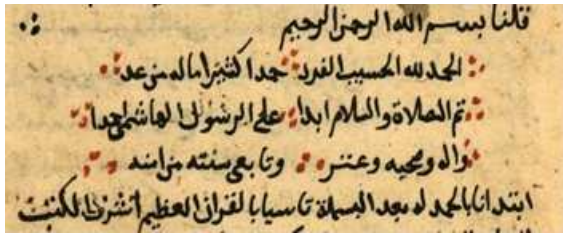 قلنا بسم الله الرحمن الرحيم
الحمد لله الحسيب الفرد حمدا كثيرا ماله من عد
ثم الصلاة والسلام ابدا على الرسول الهاشمي احمدا
واله وصحبه وعترته وتابعي سنته من امته
ابتدانا بالحمد له بعد البسملة تاسيا بالقران العظيم اشرف الكتب